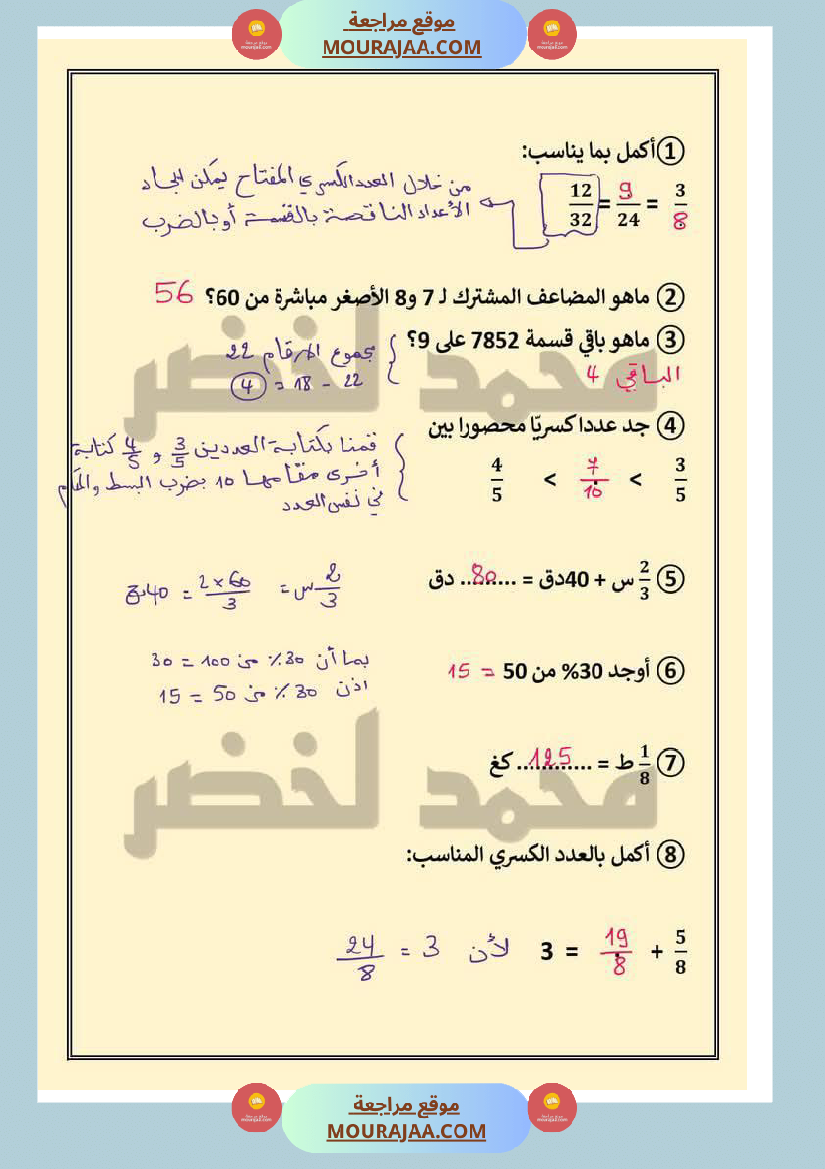 موقع مراجعة
MOURAJAA.COM
① أكمل بما يناسب:
3/8 = 9/24 = 12/32
من خلال العدد الكسري المفتاح يمكن ايجاد
الأعداد الناقصة بالقسمة أو بالضرب
② ماهو المضاعف المشترك لـ 7 و8 الأصغر مباشرة من 60؟ 56
③ ماهو باقي قسمة 7852 على 9؟
مجموع الارقام 22
22 - 18 = 4
الباقي 4
④ جد عددا كسريّا محصورا بين
قمنا بكتابة العددين 3/5 و 4/5 كتابة
أخرى مقامها 10 بضرب البسط والمقام
في نفس العدد
3/5 > 7/10 > 4/5
⑤ 2/3 س + 40دق = ...80... دق
2/3 س = 2 × 60/3 = 40دق
⑥ أوجد 30% من 50 = 15
بما أن 30٪ من 100 = 30
اذن 30٪ من 50 = 15
⑦ 1/8 ط = ...125... كغ
محمد لخضر
محمد لخضر
⑧ أكمل بالعدد الكسري المناسب:
5/8 + 19/8 = 3 لأن 3 = 24/8
موقع مراجعة
MOURAJAA.COM